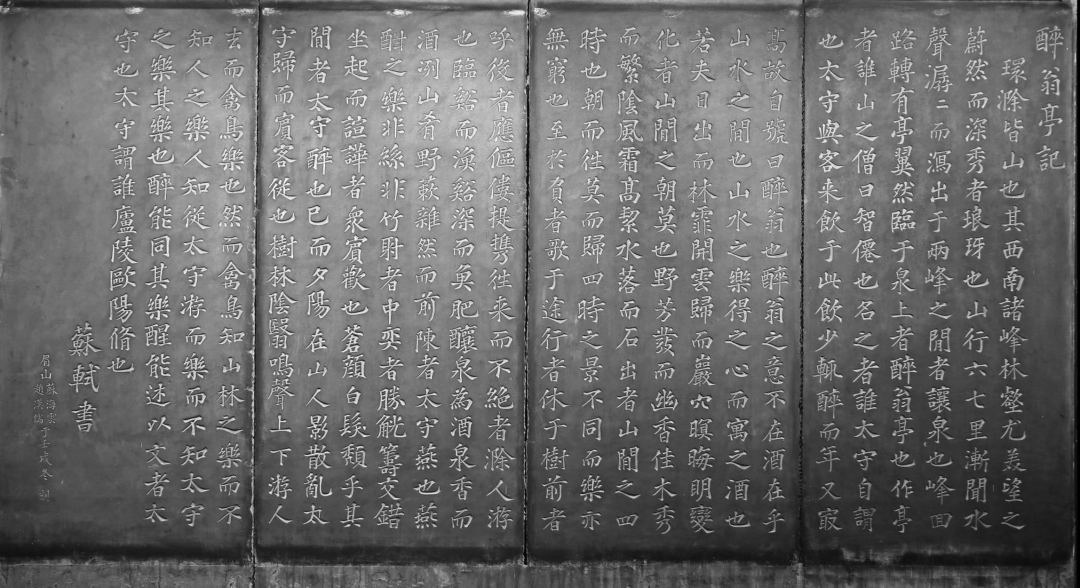 醉翁亭記
環滁皆山也其西南諸峰林壑尤美望之
蔚然而深秀者琅玡也山行六七里漸聞水
聲潺二而瀉出于兩峰之間者讓泉也峰回
路轉有亭翼然臨于泉上者醉翁亭也作亭
者誰山之僧曰智僊也名之者誰太守自謂
也太守與客来飲于此飲少輒醉而年又最
高故自號曰醉翁也醉翁之意不在酒在乎
山水之間也山水之樂得之心而寓之酒也
若夫日出而林霏開雲歸而巖穴暝晦明變
化者山間之朝莫也野芳發而幽香佳木秀
而繁陰風霜高絜水落而石出者山間之四
時也朝而往莫而歸四時之景不同而樂亦
無窮也至於負者歌于途行者休于樹前者
呼後者應傴僂提攜往来而不絕者滁人游
也臨谿而漁谿深而魚肥釀泉為酒泉香而
酒洌山肴野蔌雜然而前陳者太守燕也燕
酣之樂非絲非竹射者中奕者勝觥籌交錯
坐起而諠譁者衆賓歡也蒼顏白髮頹乎其
間者太守醉也已而夕陽在山人影散亂太
守歸而賓客從也樹林陰翳鳴聲上下游人
去而禽鳥樂也然而禽鳥知山林之樂而不
知人之樂人知從太守游而樂而不知太守
之樂其樂也醉能同其樂醒能述以文者太
守也太守謂誰廬陵歐陽脩也
蘇軾書
眉山蘇海雲